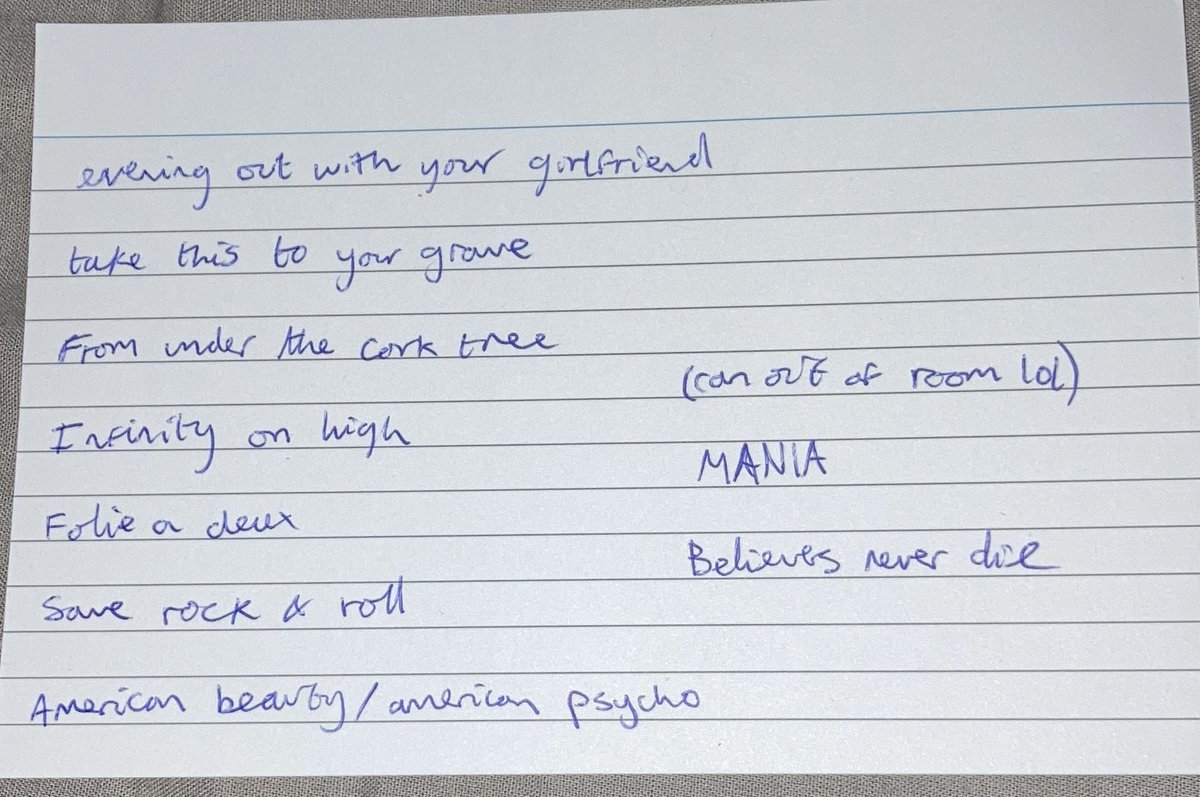 evening out with your girlfriend
take this to your grave
From under the cork tree
Infinity on high
Folie a deux
Save rock & roll
American beauty/american psycho
(ran out of room lol)
MANIA
Believers never die